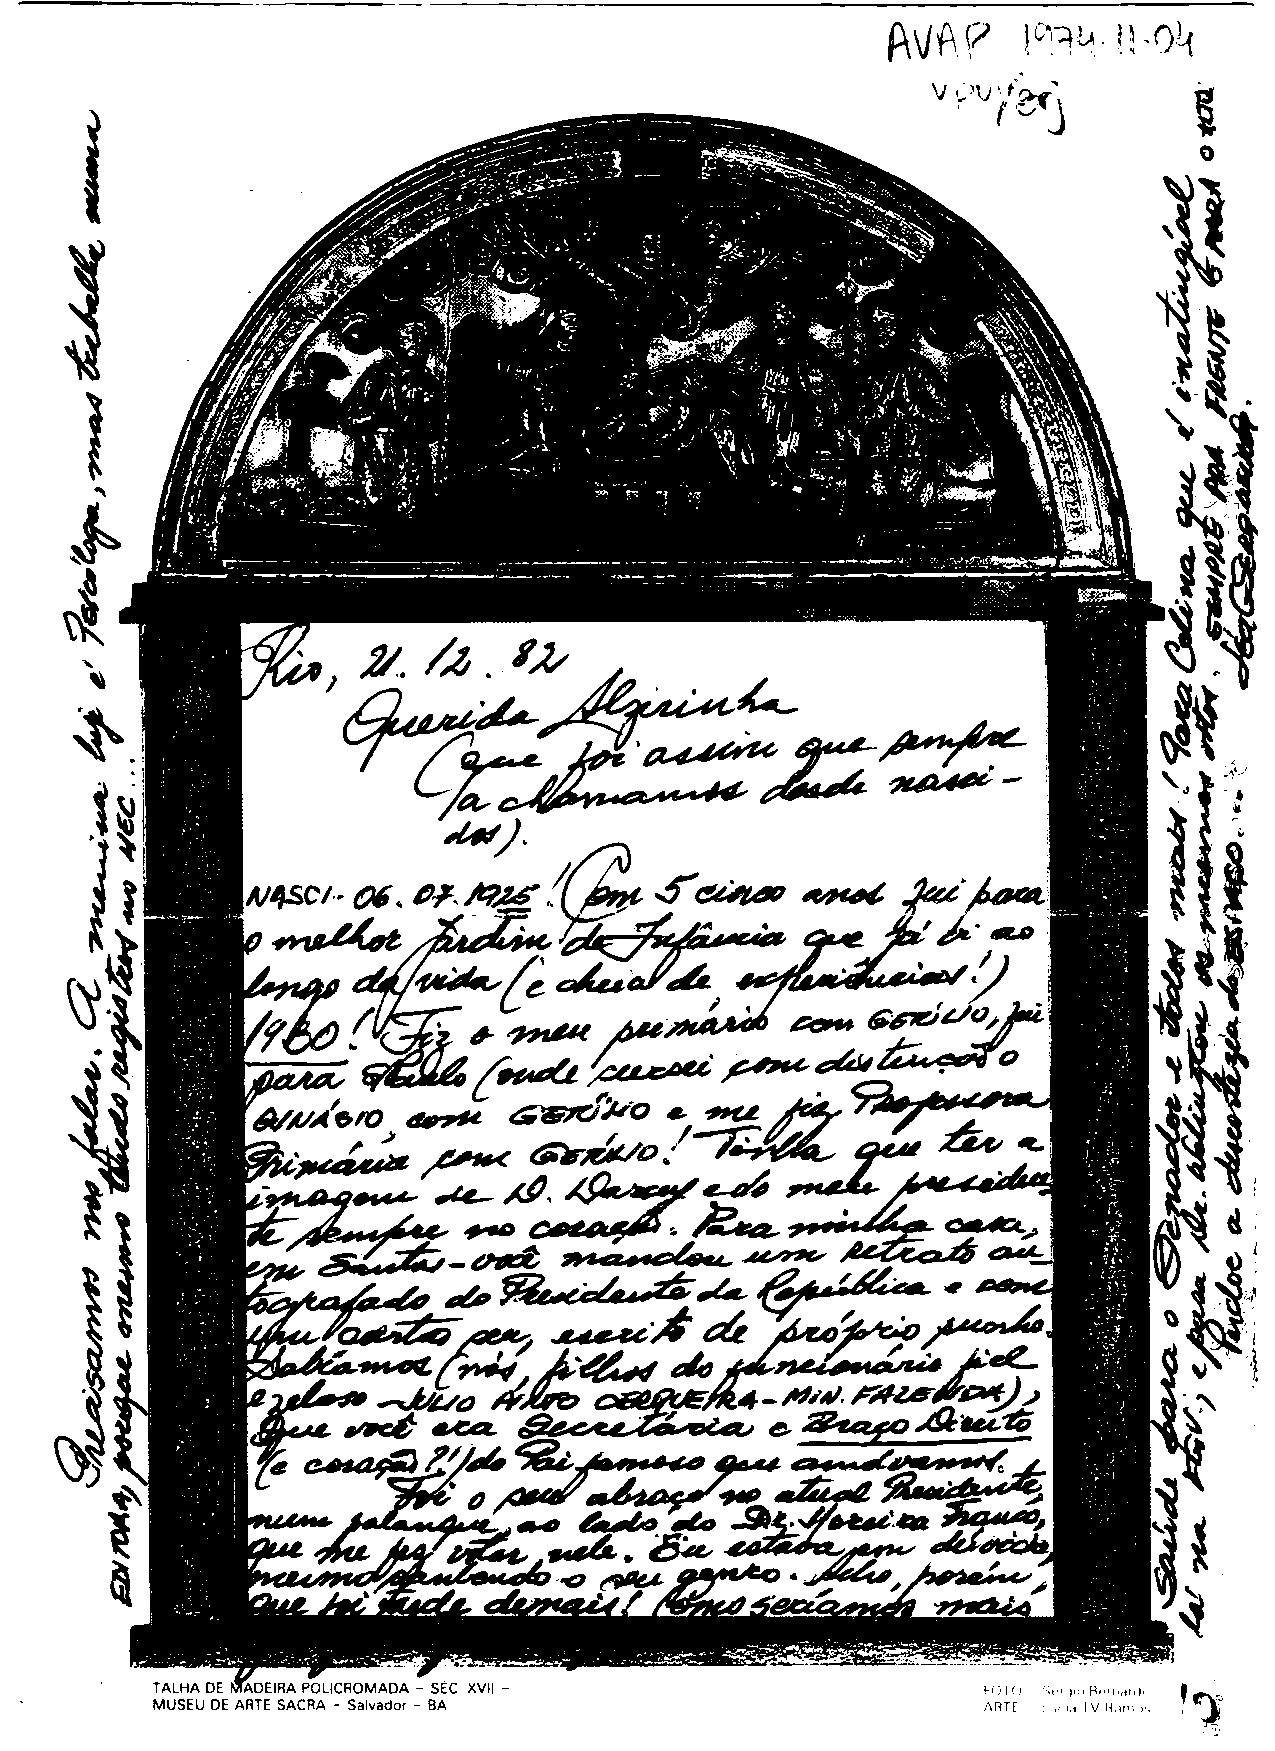 AVAP 1974.11.04
vpu/erj
Rio, 21.12.82
Querida Alzirinha
(que foi assim que sempre
a chamamos desde nasci-
dos).
NASCI - 06.07.1925! Com 5 cinco anos fui para
o melhor Jardim de Infância que já vi ao
longo da vida (e cheia de experiências!)
1930! Fiz o meu primário com GETÚLIO, fui
para (onde cursei com distinção o
GINÁSIO, com GETÚLIO e me fiz Professora
Primária com GETÚLIO! Tinha que ter a
imagem de D. Darcy e do meu presiden-
te sempre no coração. Para minha casa,
em Santos - você mandou um retrato au-
tografado do Presidente da República e com
um cartão seu, escrito de próprio punho.
Sabíamos (nós, filhos do funcionário fiel
e zeloso - JULIO CERQUEIRA - MIN. FAZENDA),
Que você era Secretária e Braço Direito
(e coração?!) do Pai famoso que amávamos.
Foi o seu abraço no atual Presidente,
num palanque, ao lado do Dr. Moreira Franco,
que me fez votar nele. Eu estava em dúvida,
mesmo sendo o seu genro. Acho, porém,
que foi tarde demais! Como seríamos mais
Precisamos nos falar. A menina hoje é Psicóloga, mas trabalha numa
EDITORA, porque mesmo tendo registros no MEC...
Saúde para o Senador e todos mais! Para Celina que é inatingível
lá na , e para Dr. Wellington os mesmos votos. SEMPRE PRA FRENTE E PARA O ALTO
Perdoe a descortezia do ESPAÇO...
TALHA DE MADEIRA POLICROMADA - SÉC XVII -
MUSEU DE ARTE SACRA - Salvador - BA
FOTO Sergio Bernardi
ARTE